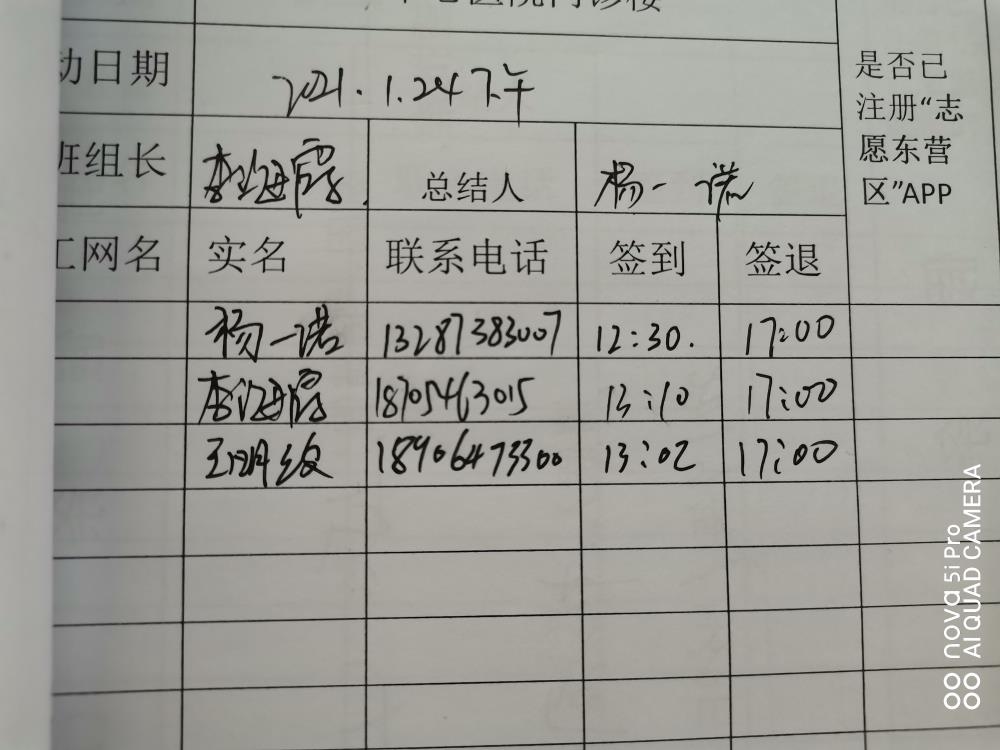 心医院门诊楼
动日期 2021.1.24下午
班组长 李海霞 总结人 杨一诺
是否已
注册“志
愿东营
区”APP
工网名 实名 联系电话 签到 签退
杨一诺 13287383007 12:30. 17:00
李海霞 18705463015 13:10 17:00
王明 18906473300 13:02 17:00
nova 5i Pro
AI QUAD CAMERA